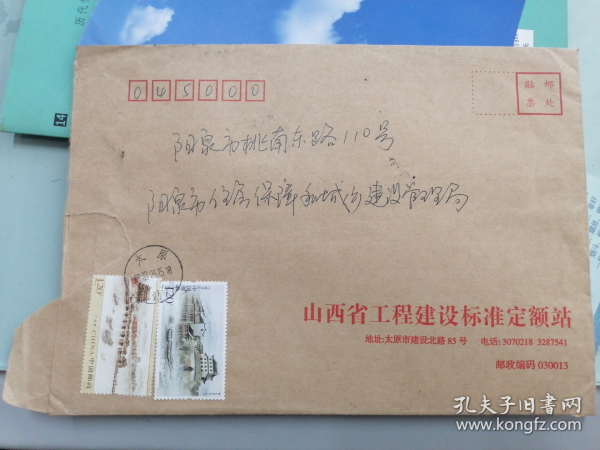 历代
14
045000
贴邮
票处
阳泉市桃南东路110号
阳泉市住房保障和城乡建设管理局
太原
CHINA 中国邮政
山西省工程建设标准定额站
地址:太原市建设北路 85 号 电话: 3070218 3287541
邮政编码 030013
孔夫子旧书网
www.kongfz.com